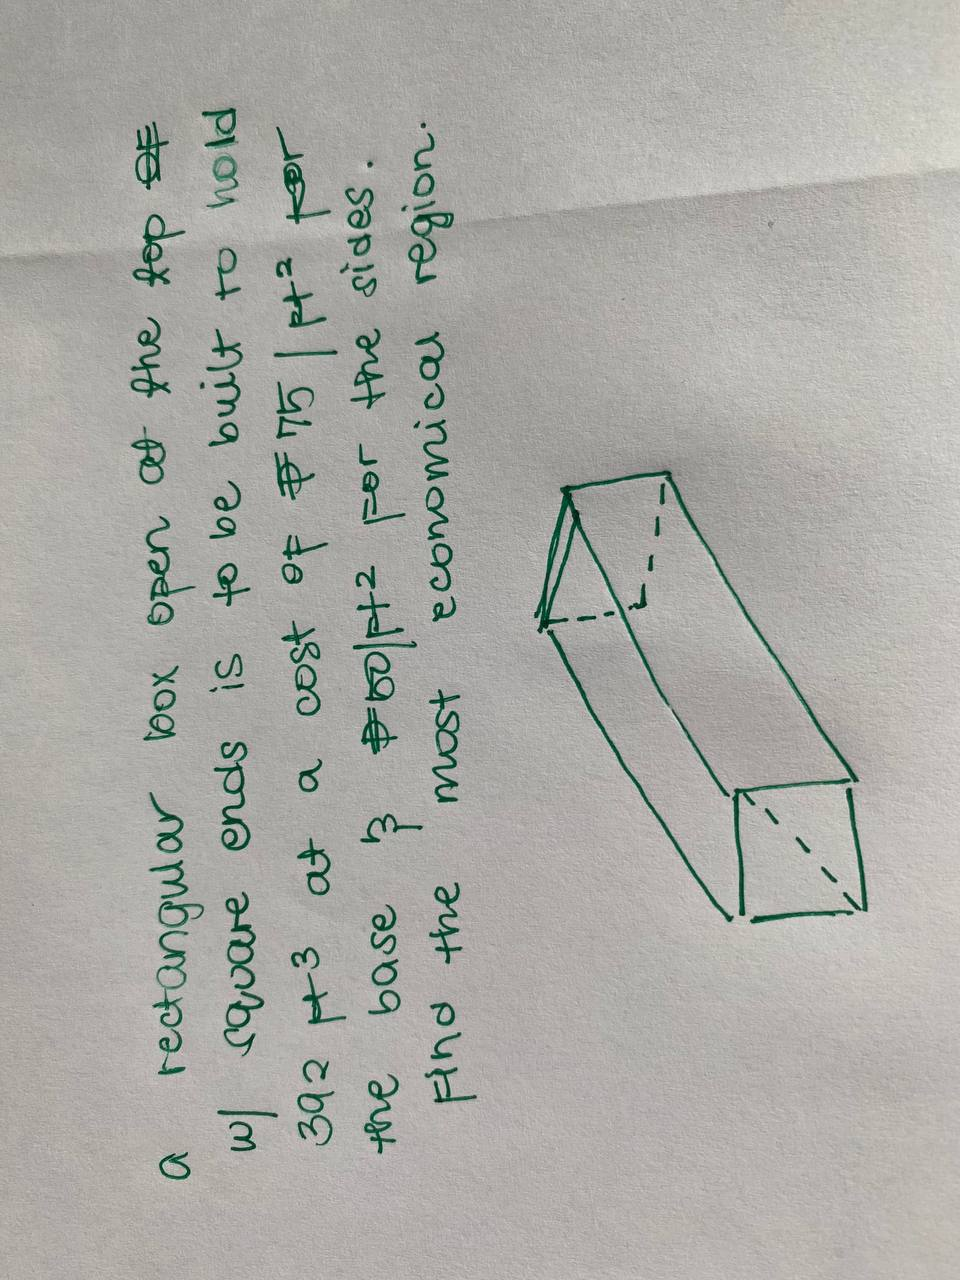 a rectangular box open at the top OF
w/ square ends is to be built to hold
392 ft3 at a cost of ₱75/ft² for
the base & ₱50/ft² for the sides.
Find the most economical region.